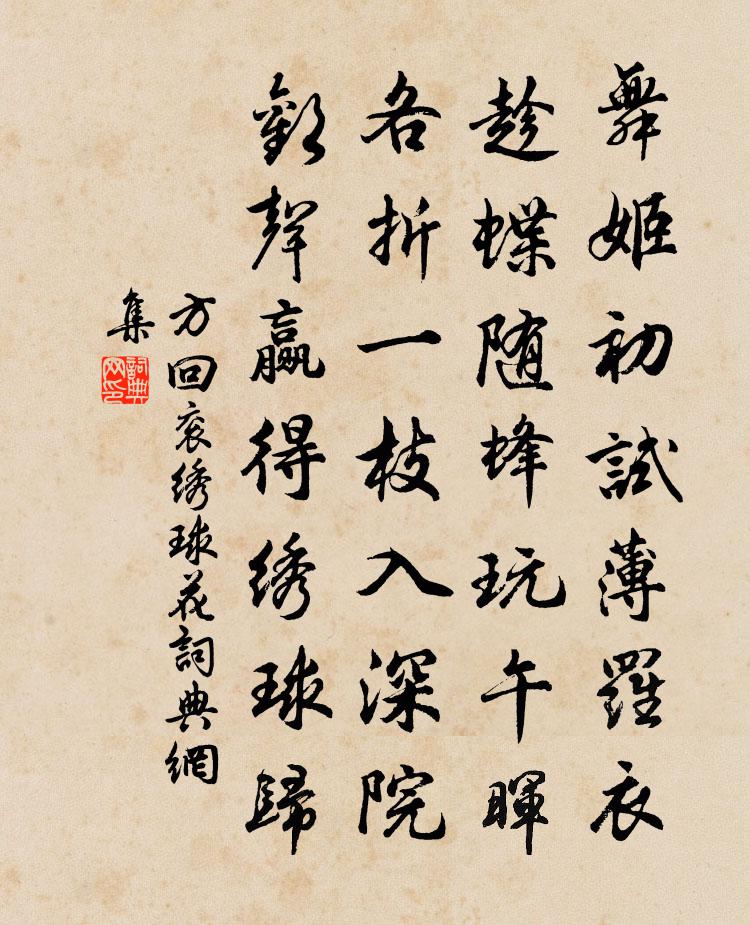 舞姬初試薄羅衣
趁蝶随蜂玩午暉
各折一枝入深院
歡聲贏得綉球歸
方回衮綉球花詞典網
集
詞典
网印